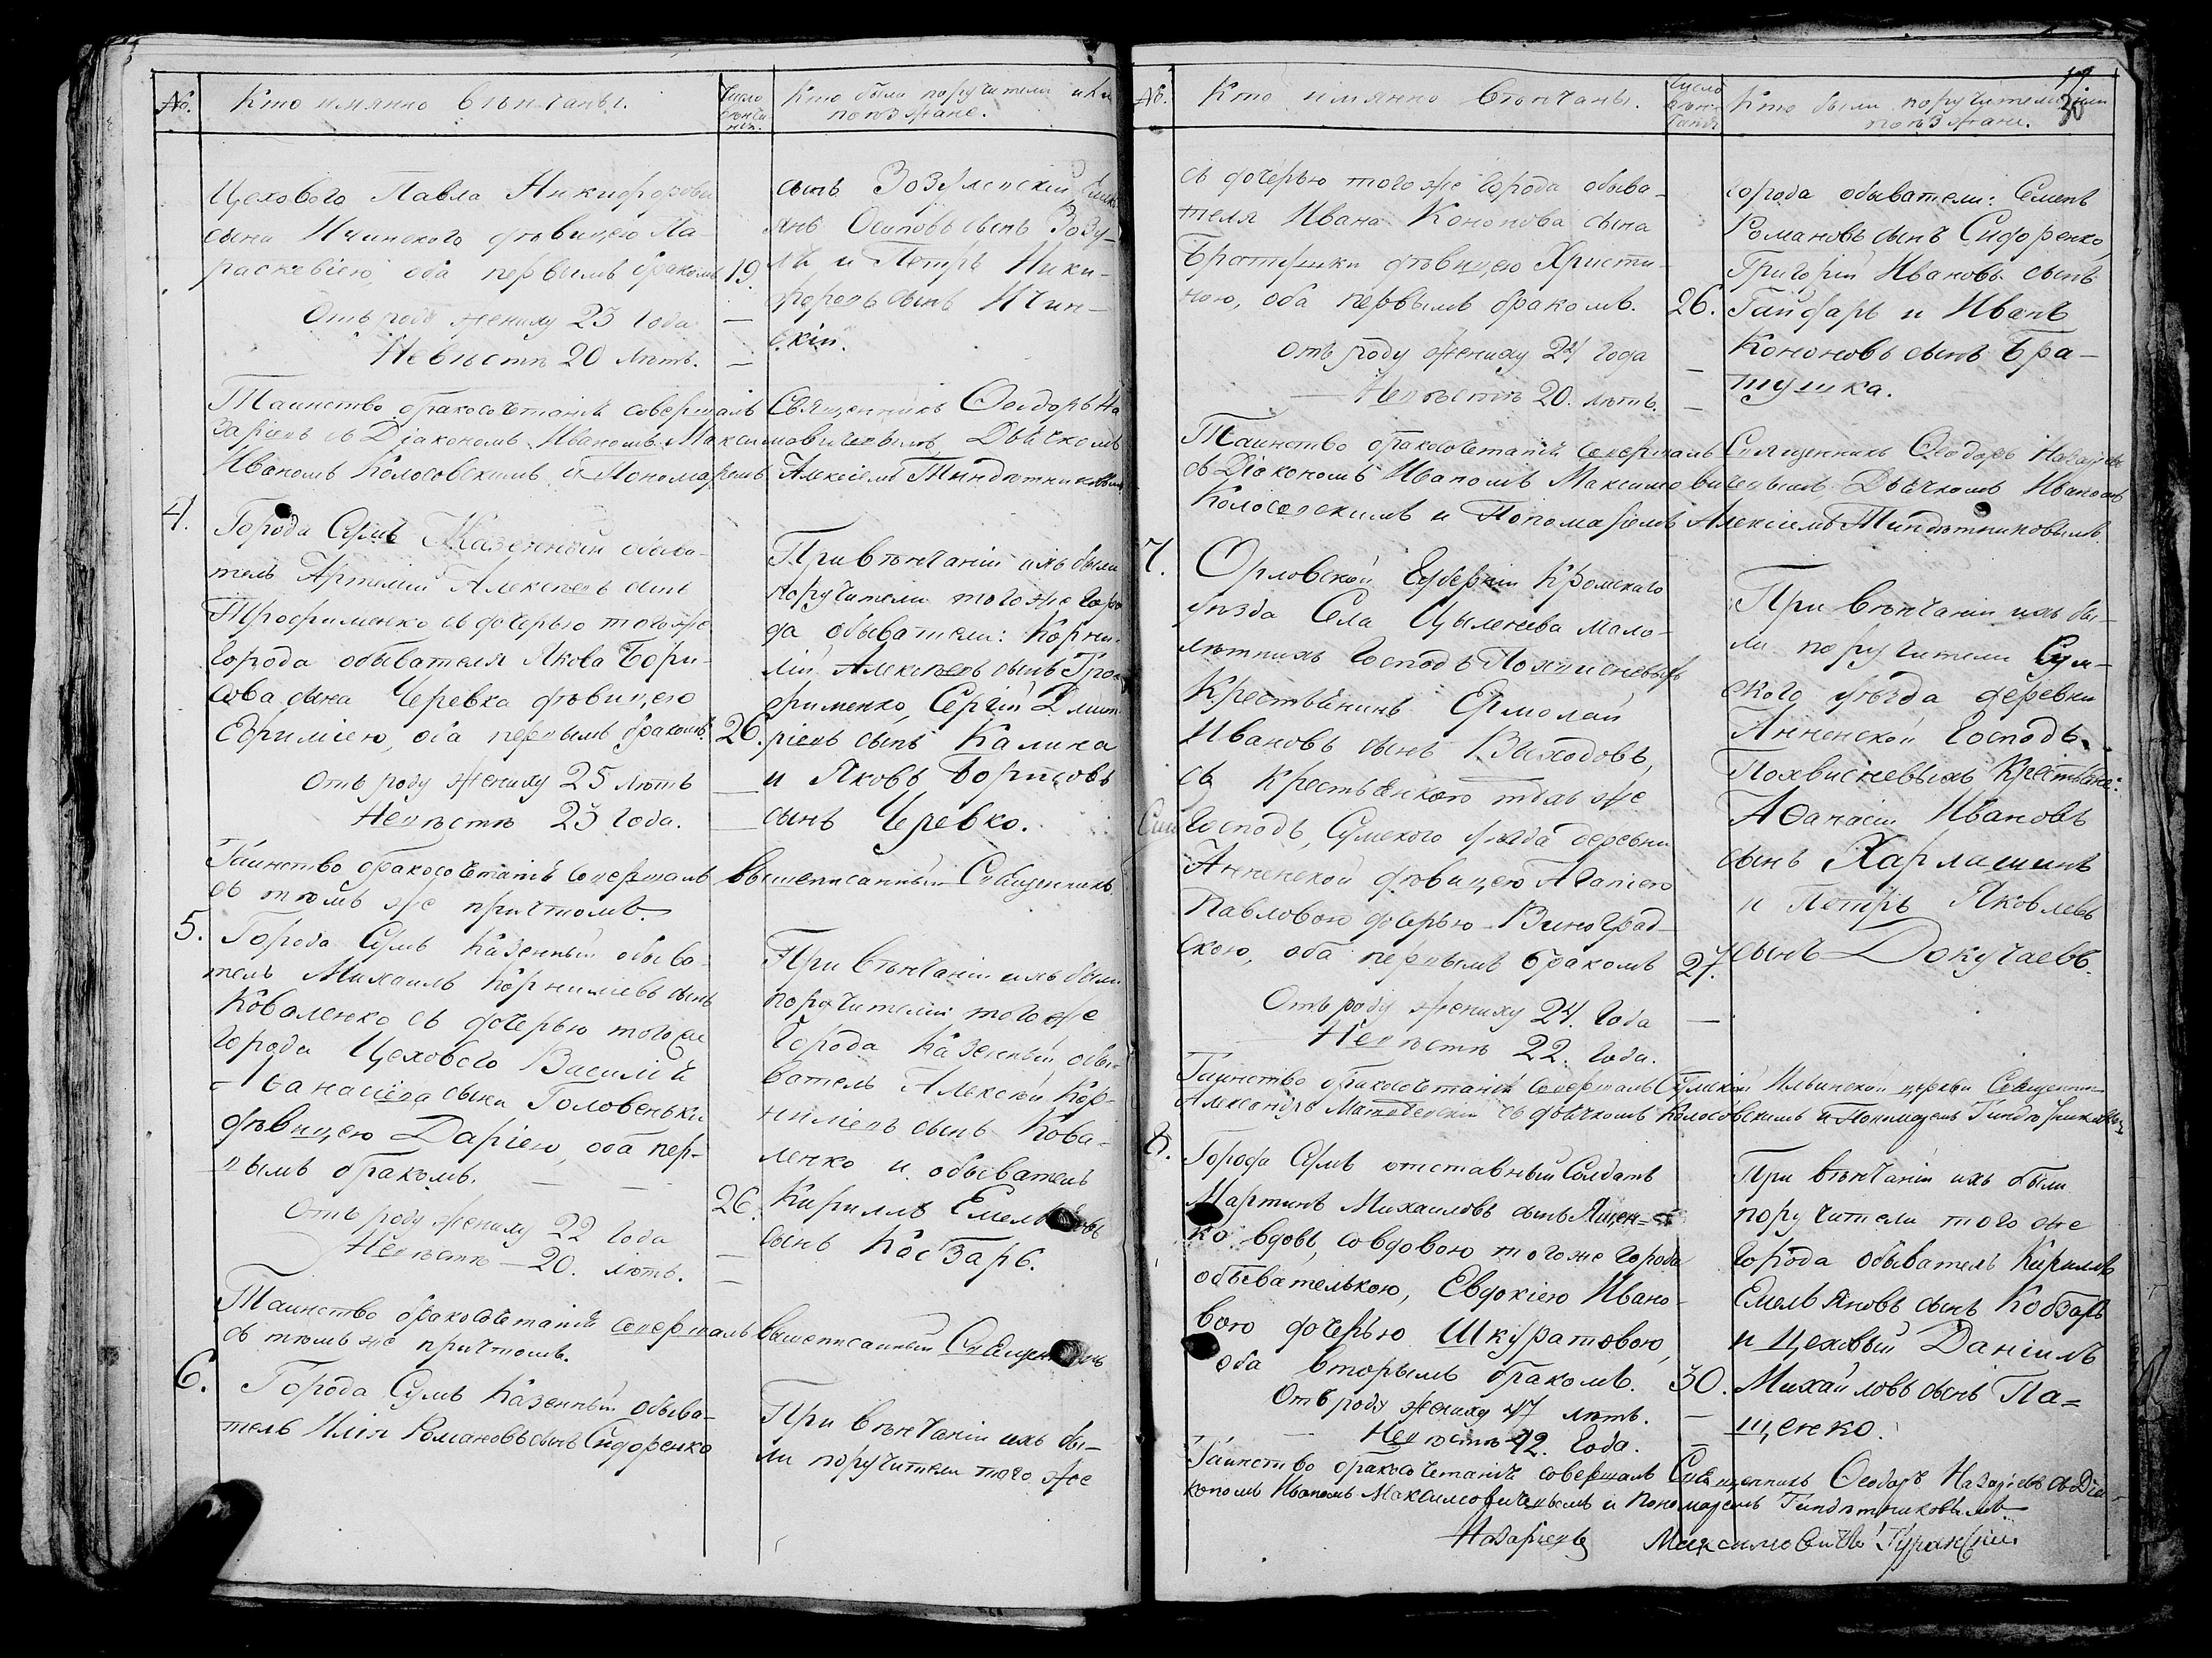 №.
Кто имянно вѣнчаны.
Число вѣнчанія.
Кто были поручители или поѣзжане.
Цехового Павла Никифорова
сына Ичинского дѣвицею Па-
раскевіею, оба первымъ бракомъ 19.
Отъ роду жениху 23 года
Невѣстѣ 20 лѣтъ.
сынъ Зозулевскій,
янъ Осиповъ сынъ Зозу-
ля, и Петръ Ники-
форовъ сынъ Ичин-
скій.
Таинство бракосочетанія совершалъ Священникъ Ѳеодоръ На
заріевъ съ Діакономъ Иваномъ Максимовичевымъ, Дьячкомъ
Иваномъ Колосовскимъ и Пономаремъ Алексіемъ
4.
Города Сумъ Казенный обыва-
тель Артемій Алексѣевъ сынъ
Трофименко съ дочерью того же
города обывателя Якова Бори-
сова сына Черевка дѣвицею
Ефиміею, оба первымъ бракомъ. 26.
Отъ роду жениху 25 лѣтъ
Невѣстѣ 23 года.
При вѣнчаніи ихъ были
поручители того же горо
да обыватели: Корни-
лій Алексѣевъ сынъ Тро
фименко, Сергій Дмит
ріевъ сынъ Калина
и Яковъ Борисовъ
сынъ Черевко.
Таинство бракосочетанія совершалъ вышеписанный Священникъ
съ тѣмъ же причтомъ.
5.
Города Сумъ Казенный обыва-
тель Михаилъ Корниліевъ сынъ
Коваленко съ дочерью того же
города Цехового Василія
Аѳанасіева сына Головеньки
дѣвицею Даріею, оба пер-
вымъ бракомъ.
26.
Отъ роду жениху 22 года
Невѣстѣ 20. лѣтъ.
При вѣнчаніи ихъ были
поручители того же
города Казенный обы-
ватель Алексѣй Кор-
ниліевъ сынъ Кова-
ленко и обыватель
Кириллъ Емельяновъ
сынъ Кобзарь.
Таинство бракосочетанія совершалъ вышеписанный Священникъ
съ тѣмъ же причтомъ.
6.
Города Сумъ Казенный обыва-
тель Илія Романовъ сынъ Сидоренко
При вѣнчаніи ихъ бы-
ли поручители того же
№.
Кто имянно вѣнчаны.
Число вѣнчанія
Кто были поручители или поѣзжане.
30
съ дочерью того же города обыва-
теля Ивана Кононова сына
Братушки дѣвицею Христи-
ною, оба первымъ бракомъ. 26.
Отъ роду жениху 24 года
Невѣстѣ 20. лѣтъ.
города обыватели: Семенъ
Романовъ сынъ Сидоренко,
Григорій Ивановъ сынъ
Гайдарь и Иванъ
Кононовъ сынъ Бра-
тушка.
Таинство бракосочетанія совершалъ Священникъ Ѳеодоръ Назаріевъ
съ Діакономъ Иваномъ Максимовичевымъ Дьячкомъ Иваномъ
Колосовскимъ и Пономаремъ Алексіемъ
7.
Орловской Губерніи Кромскаго
уѣзда Села Цыленева мало-
лѣтнихъ Господъ Похвисневыхъ
Крестьянинъ Ермолай
Ивановъ сынъ Выходовъ,
съ Крестьянкою тѣхъ же
Господъ, Сумского уѣзда деревни
Анненской дѣвицею Агапіею
Павловою дочерью Виноград-
скою, оба первымъ бракомъ 27.
Отъ роду жениху 24. года
Невѣстѣ 22. года.
При вѣнчаніи ихъ бы-
ли поручители Сум-
ского уѣзда деревни
Анненской Господъ
Похвисневыхъ Крестьяне:
Аѳанасій Ивановъ
сынъ Харлашинъ
и Петръ Яковлевъ
сынъ Докучаевъ.
Таинство бракосочетанія совершалъ Сумской Ильинской церкви Священникъ
Александръ съ дьячкомъ Колосовскимъ и Пономаремъ
8.
Города Сумъ отставный Солдатъ
Мартинъ Михаиловъ сынъ Ящен=
ко вдовъ, со вдовою того же города
обывателькою, Евдокіею Ивано-
вою дочерью Шкуратовою,
оба вторымъ бракомъ. 30.
Отъ роду жениху 47 лѣтъ.
Невѣстѣ 42. года.
При вѣнчаніи ихъ были
поручители того же
города обыватель Кириллъ
Емельяновъ сынъ Кобзарь
и цеховый Даніилъ
Михайловъ сынъ Па=
щенко.
Таинство бракосочетанія совершалъ Священникъ Ѳеодоръ Назаріевъ съ Діа-
кономъ Иваномъ Максимовичевымъ и Пономаремъ
Назаріевъ Максимовичевъ